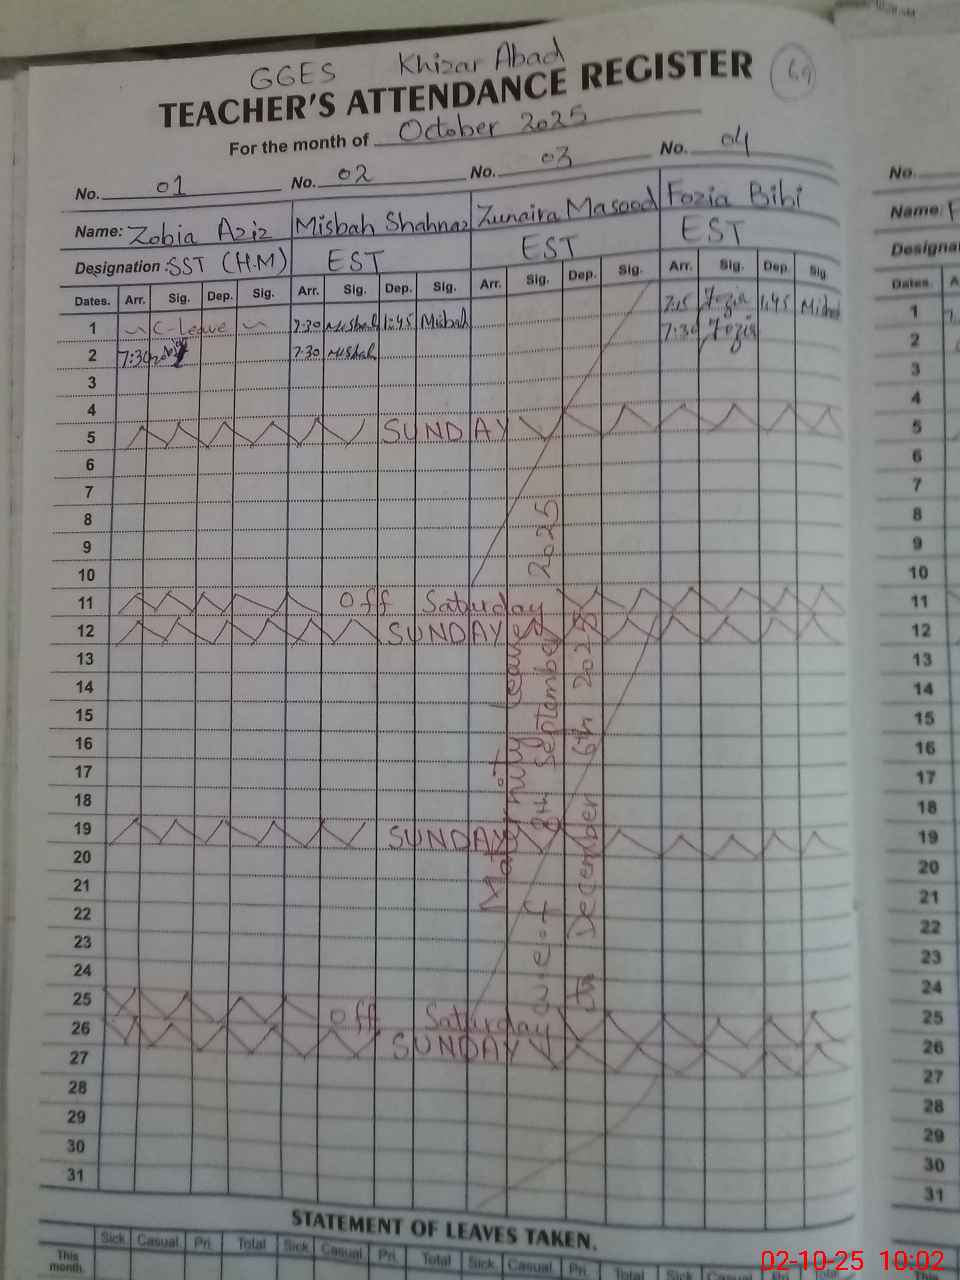 GGES Khizar Abad
TEACHER'S ATTENDANCE REGISTER
69
For the month of October 2025
No. 01 No. 02 No. 03 No. 04
Name: Zobia Aziz Misbah Shahnaz Zunaira Masood Fozia Bibi
Designation: SST (H.M) EST EST EST
Dates. Arr. Sig. Dep. Sig. Arr. Sig. Dep. Sig. Arr. Sig. Dep. Sig. Arr. Sig. Dep. Sig.
1 C-Leave 7:30 Misbah 1:45 Misbah 7:15 Fozia 1:45
2 7:30 7:30 Misbah 7:30 Fozia
3
4
5 SUNDAY
6
7
8
9
10
11 Off Saturday
12 SUNDAY
13
14
15
16
17
18
19 SUNDAY
20
21
22
23
24
25 Off Saturday
26 SUNDAY
27
28
29
30
31
Maternity leave
w.e.f 8th September 2025
to December 6th 2025
STATEMENT OF LEAVES TAKEN.
Sick. Casual. Pri. Total Sick. Casual. Pri. Total Sick. Casual. Pri. Total Sick Casual
This
month.
No.
Name: F
Designa
Dates. A
1
2
3
4
5
6
7
8
9
10
11
12
13
14
15
16
17
18
19
20
21
22
23
24
25
26
27
28
29
30
31
02-10-25 10:02